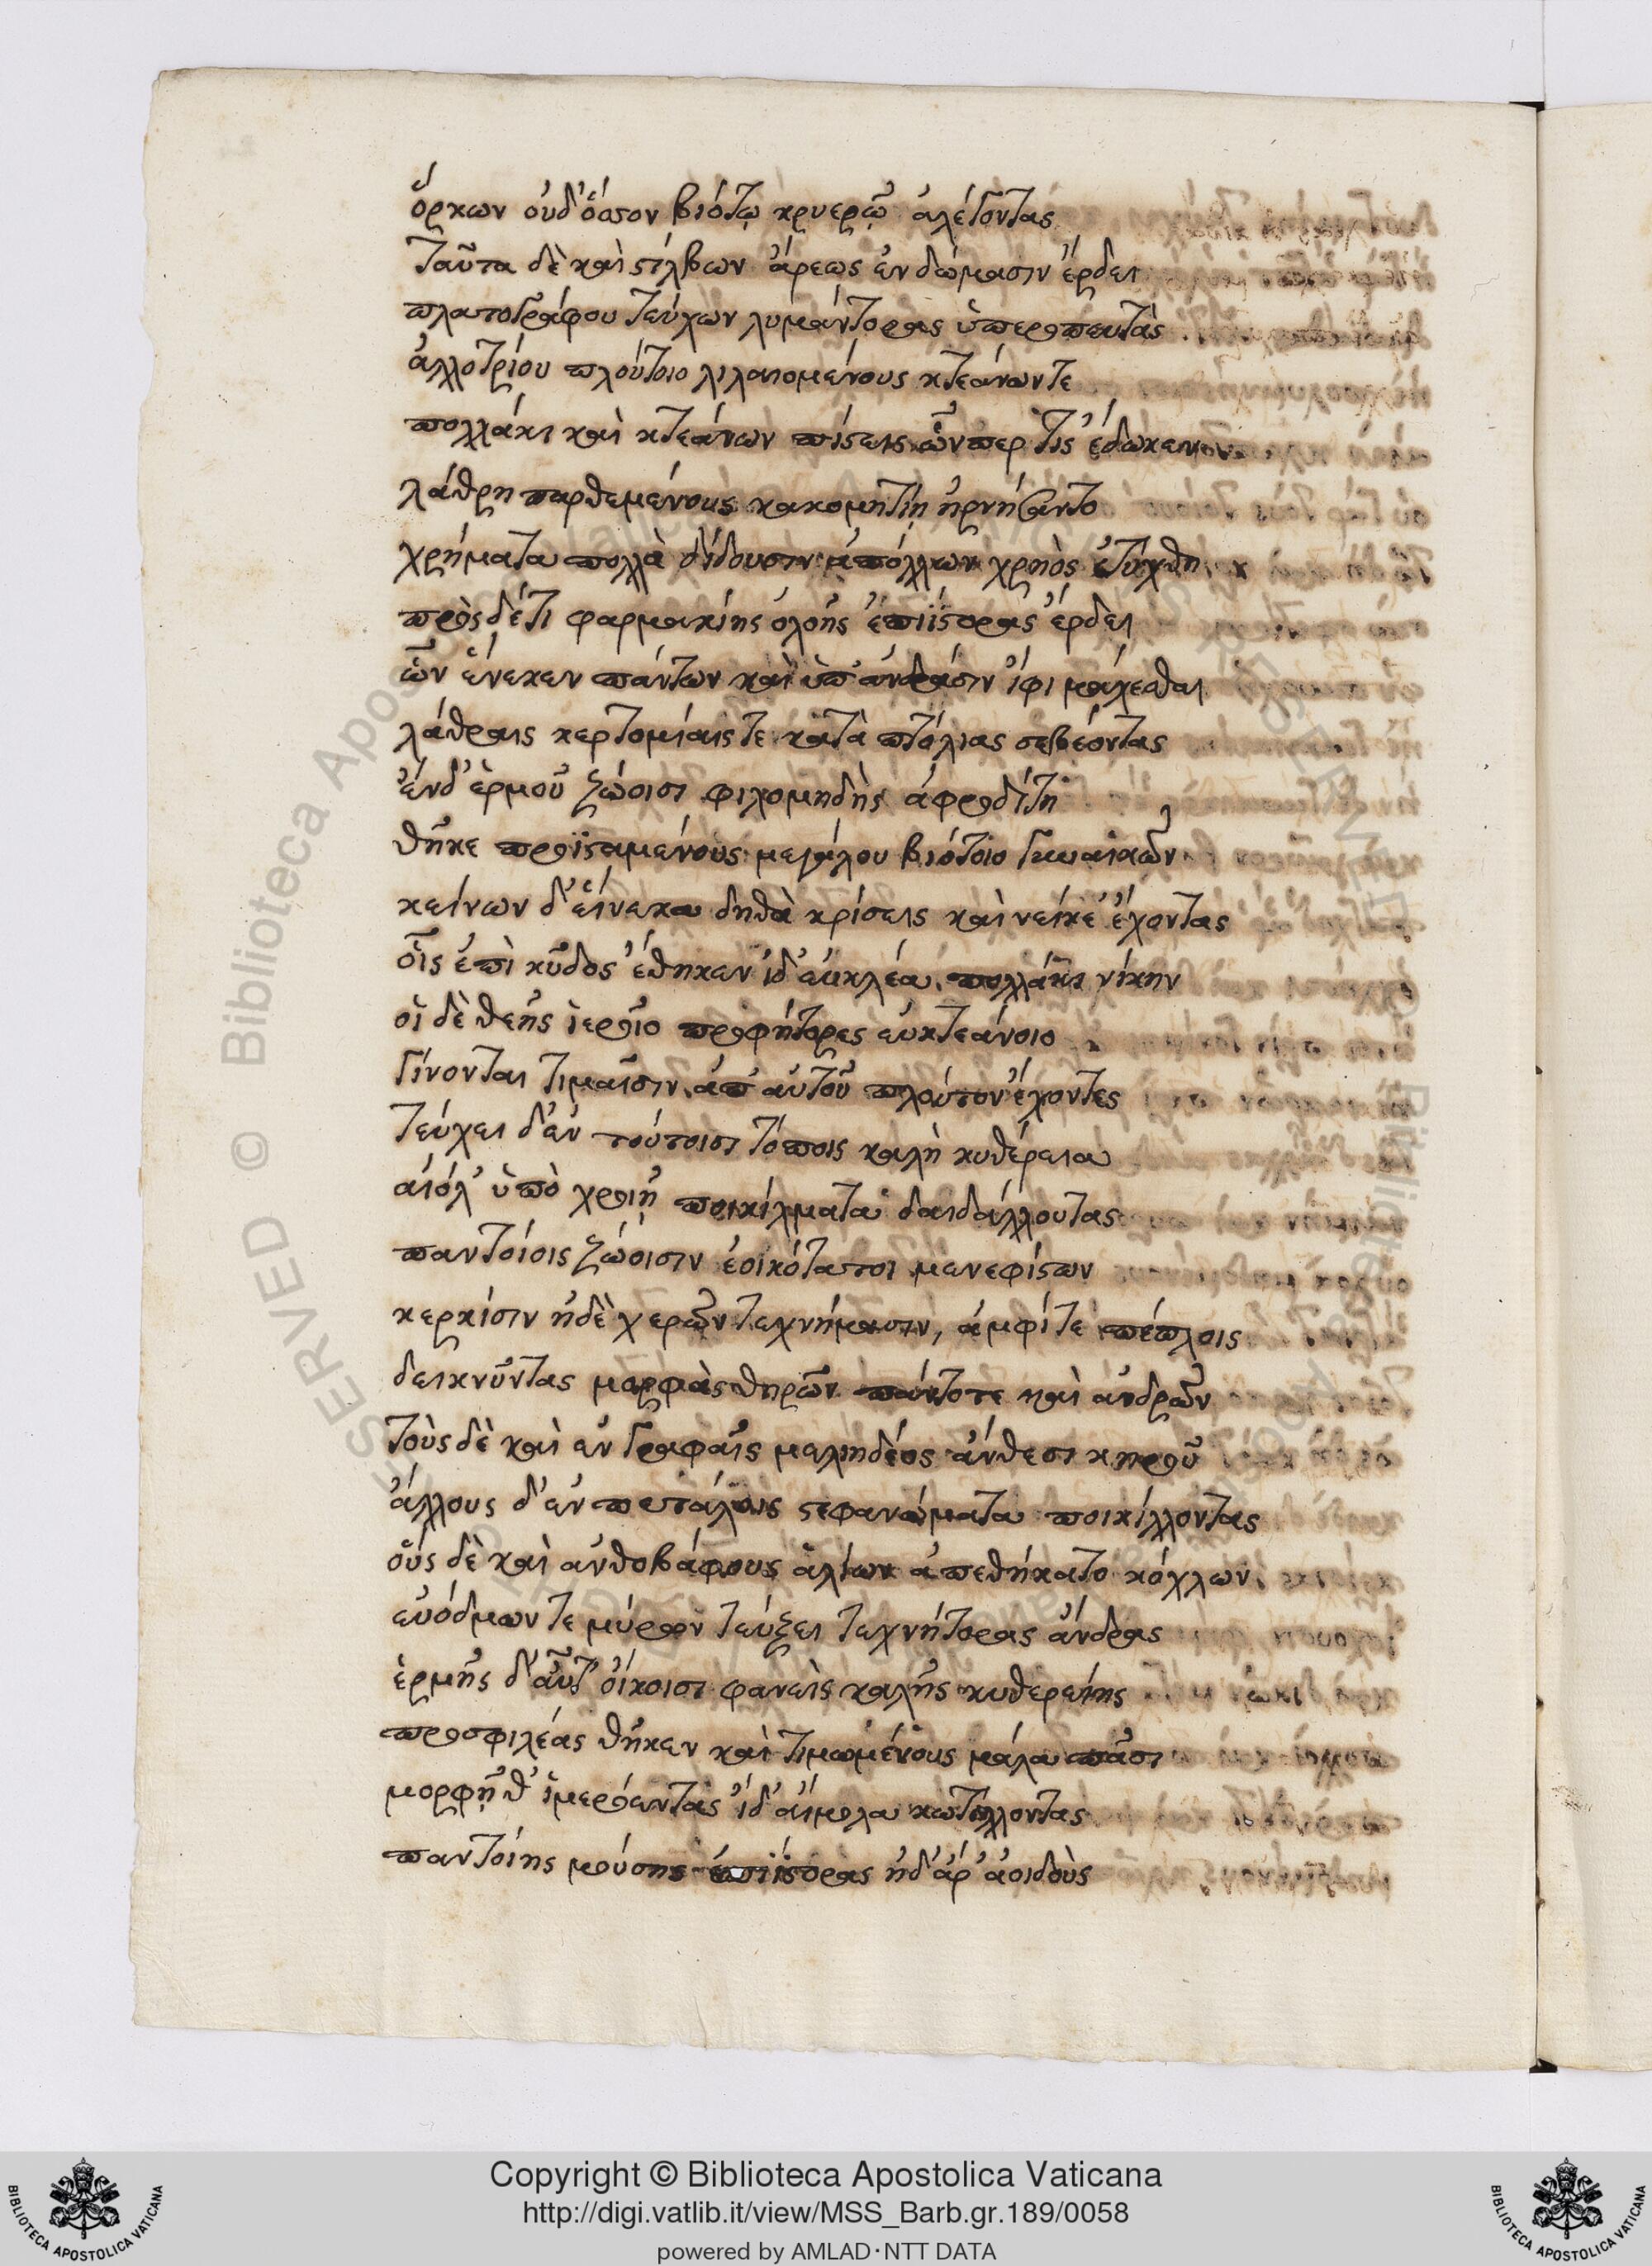 ὅρκων οὐδ' ὅσσον βιότῳ κρυερῷ ἀλέγοντας
Ταῦτα δὲ καὶ στίλβων ἄρεως ἐν δώμασιν ἔρδει
πλαστογράφου τεύχων λυμάντορας ὑπεροπευτὰς
ἀλλοτρίου πλούτοιο λιλαιομένους κτεάνων τε
πολλάκι καὶ κτεάνων πίστεις ὧνπερ τις ἔδωκεν
λάθρη παρθεμένους κακομητίῃ ἠρνήσαντο
χρήματα πολλὰ διδουσιν χρηὸς ἐτύχθη
πρὸς δέτι φαρμακίης ὀλοῆς ἐπιίστορας ἔρδει
ὧν ἕνεκεν πάντων καὶ ὑπ' ἀνδράσιν ἶφι μάχεσθαι
λάθραις κερτομίαις τε κατὰ πτόλιας
ἐν δ' ἑρμοῦ ζώοισι φιλομηδὴς ἀφροδίτη
θῆκε προϊσταμένους μεγάλου βιότοιο γυναικῶν
κείνων δ' εἵνεκα δηθὰ κρίσεις καὶ νείκε' ἔχοντας
οἷς ἐπὶ κῦδος ἔθηκεν ἰδ' εὐκλέα πολλάκι νίκην
οἱ δὲ θεῆς ἱεροῖο προφήτορες εὐκτεάνοιο
Γίνονται τιμαῖσιν ἀπ' αὐτοῦ πλοῦτον ἔχοντες
Τεύχει δ' ἐν τούτοισι τόποις καλὴ κυθέρεια
αἰόλ' ὑπὸ χροιῇ ποικίλματα δαιδάλλοντας
παντοίοις ζώοισιν ἐοικότα τοι μεν ἐφ' ἱστῶν
κερκίσιν ἠδὲ χερῶν τεχνήμασιν, ἀμφί τε πέπλοις
δεικνῦντας μορφὰς θηρῶν πάντοτε καὶ ἀνδρῶν
Τοὺς δὲ καὶ ἐν γραφαῖς μελιηδέος ἄνθεσι κηροῦ
ἄλλους δ' ἐν πετάλοις στεφανώματα ποικίλλοντας
οὓς δὲ καὶ ἀνθοβάφους ἁλίων ἀπεθήκατο κόχλων
εὐόδμων τε μύρων τεύξει τεχνήτορας ἄνδρας
ἑρμῆς δ' αὖτ' οἴκοισι φανεὶς καλῆς κυθερείης
προσφιλέας θῆκεν καὶ τιμωμένους μάλα πᾶσι
μορφῇ θ' ἱμερόεντας ἰδ' αἵμυλα κωτίλλοντας
παντοίης μούσης ἐπιίστορας ἠδ' ἄρ' ἀοιδοὺς
Copyright © Biblioteca Apostolica Vaticana
http://digi.vatlib.it/view/MSS_Barb.gr.189/0058
powered by AMLAD·NTT DATA